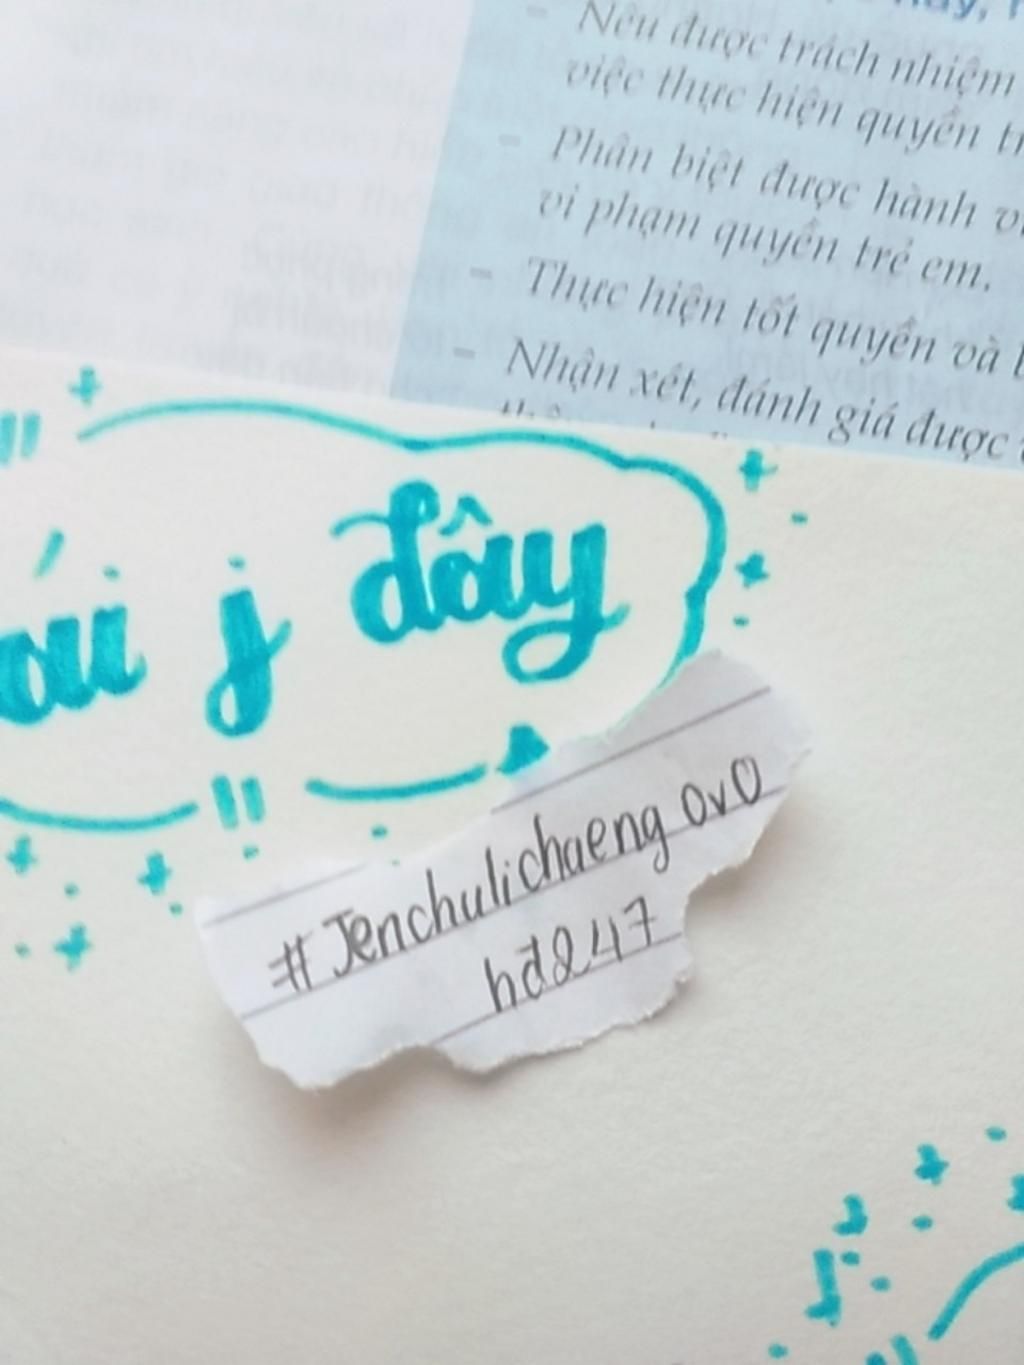 - Nêu được trách nhiệm
việc thực hiện quyền
- Phân biệt được hành
vi phạm quyền trẻ em.
- Thực hiện tốt quyền và
- Nhận xét, đánh giá được
j đây
#Jenchulichaeng OvO
hđ247